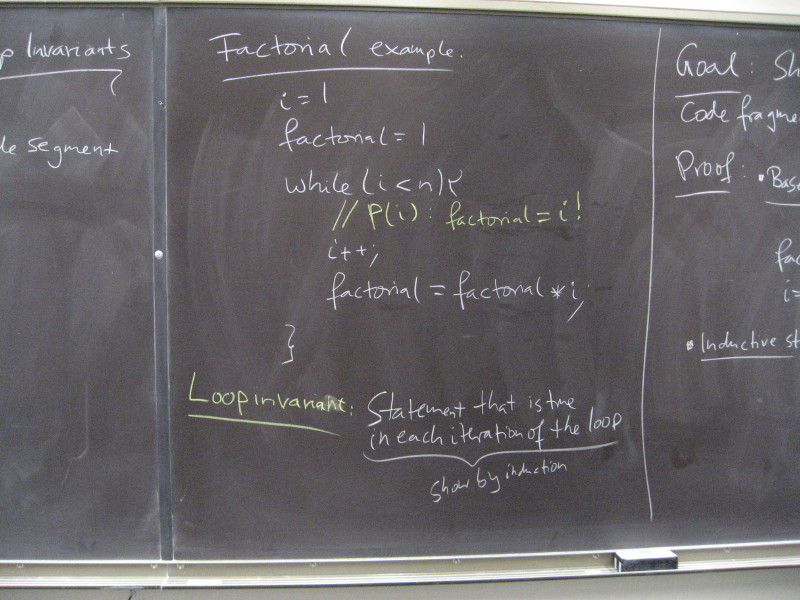 p Invariants
de segment
Factorial example:
i = 1
factorial = 1
while (i < n) {
// P(i): factorial = i!
i++;
factorial = factorial * i;
}
Loop invariant: Statement that is true
in each iteration of the loop
show by induction
Goal: Sh
Code fragme
Proof: • Base
fac
i =
• Inductive st